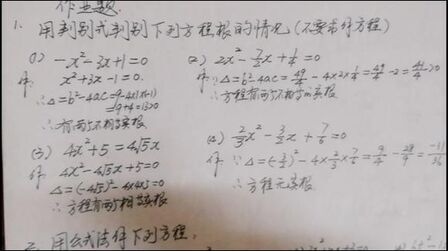 作业题.
1. 用判别式判别下列方程根的情况(不要求解方程)
(1) -x²-3x+1=0
解: x²+3x-1=0.
∴△=b²-4ac=9-4×1×(-1)
=9+4=13>0
∴方程有两个不相等实根
(2) 2x²-7/2x+1/4=0
解:∴△=b²-4ac=49/4-4×2×1/4=49/4-2=41/4>0
∴方程有两个不相等的实根.
(3) 4x²+5=4√5x
解: 4x²-4√5x+5=0
△=(-4√5)²-4×4×5=0
∴方程有两个相等实根
(4) 2/3x²-3/2x+7/6=0
解: ∵△=(-3/2)²-4×2/3×7/6=9/4-28/9=-11/36
∴方程无实根
用公式法解下列方程.